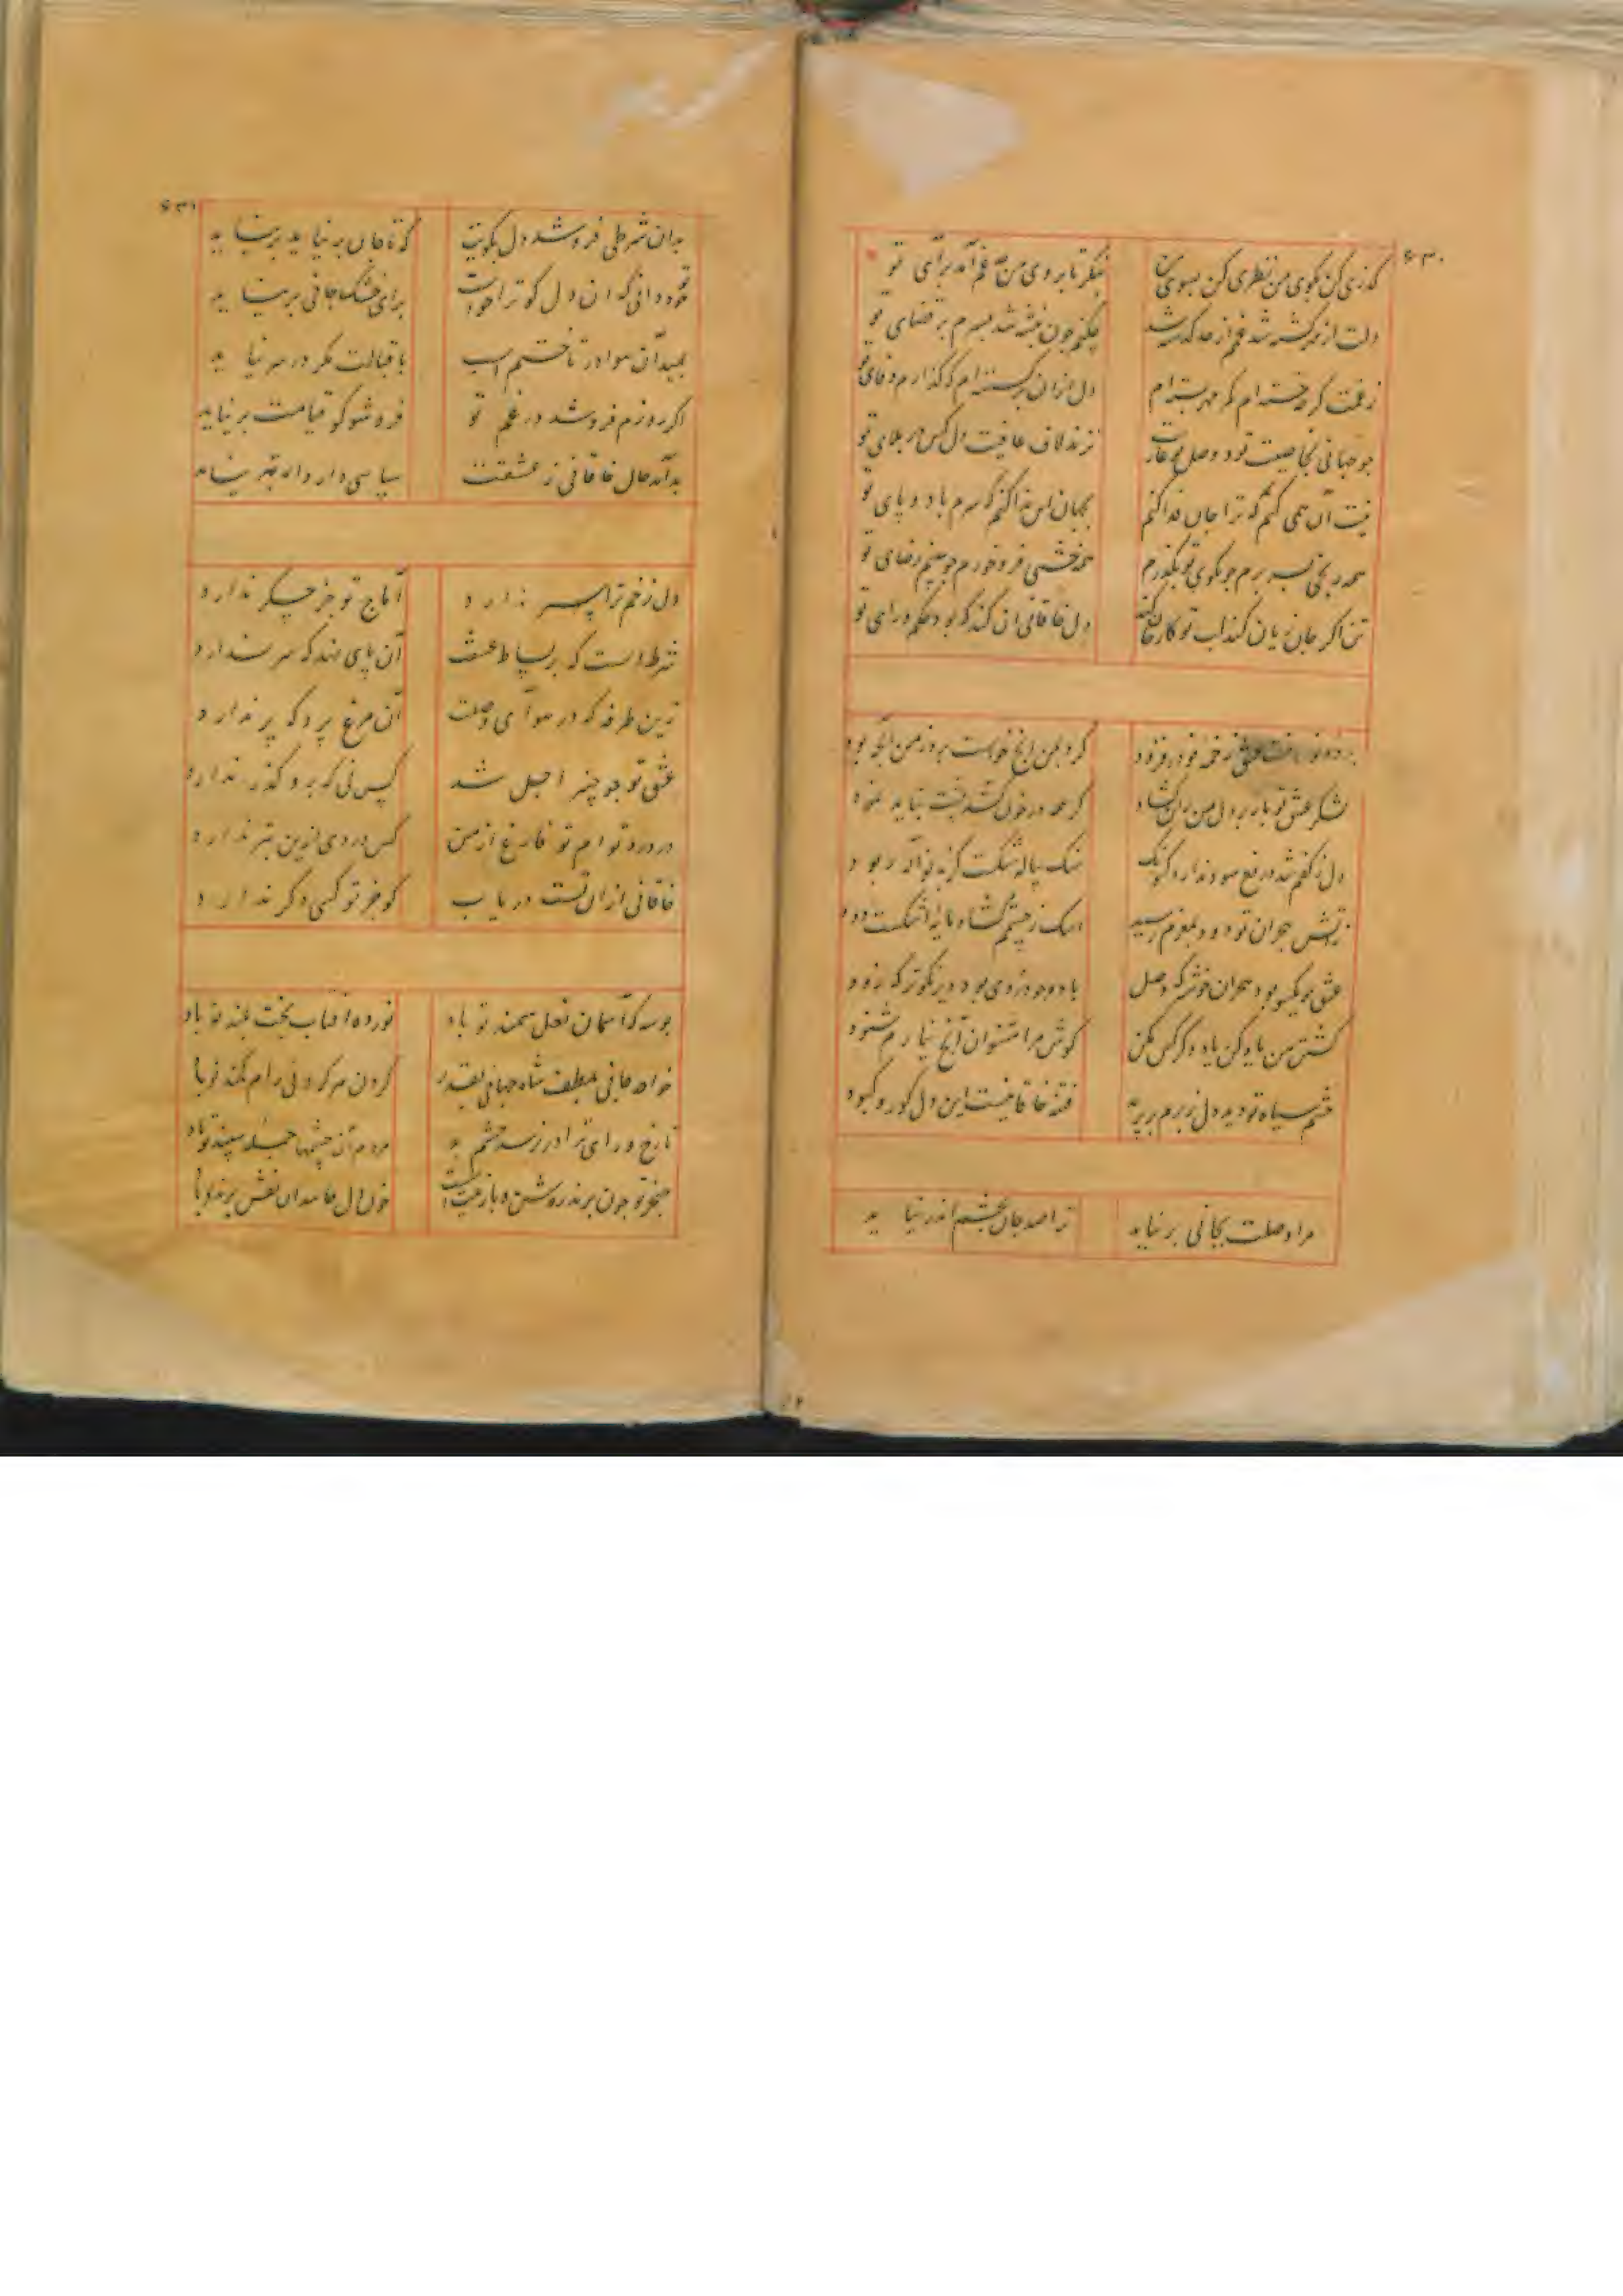 ۶۳۰
گذری کن بکوی من نظری کن بسوی من
بنگر تا بروی من چه غم آمد برای تو
دلت از مهر گشته شد غم از حد گذشته شد
چکنم چون نبشته شد بسرم بر قضای تو
دل ازان برگرفته‌ام که گذارم وفای تو
زند لاف عافیت دل کس در بلای تو
نیست آن همی کنم که ترا جان فدا کنم
بجهان این ندا کنم که سرم باد و پای تو
همه رنجی بسر برم چو بکوی تو بگذرم
همه خشمی فرو خورم چو ببینم رضای تو
تن اگر جان زیان کند لب تو کار جان کند
دل خاقانی ان کند که بود حکم و رای تو
کرد بمن انچ خواست برد ز من آنچه بود
لشکر عشق تو باز بر دل من ران گشاد
گر همه در خون کشد پشت نباید نمود
دل ز کفم شد دریغ سود ندارد کنونک
سنگ پیاله شکست گربه نواله ربود
زاتش هجران تو دود بمغزم رسید
اشک ز چشمم گشاد مایهٔ اشکست دود
عشق چو یکسر بود هجران خوشتر که وصل
باده چو دردی بود دیر نکوتر که زود
کشتن من یاد کن یاد دگر کس مکن
گوش مرا مشنوان آنچ نیارم شنود
چشم سیاه تو دید دل ز برم بر پرید
فتنه خاقانیست این دل کور و کبود
مرا وصلت بجانی بر نیاید
ترا صد جان بچشم اندر نیاید
۶۳۱
بدان شرطی فروشد دل بکویت
که تا جان بر نیاید بر نیاید
تو خود دانی که ان دل کو ترا خواست
برای خشک جانی بر نیاید
بمیدآن هوا در تاختم اسب
باقبالت مگر در سر نیاید
اگر روزم فروشد در غم تو
فروشو گو قیامت بر نیاید
بدآمد حال خاقانی ز عشقت
سپاسی دارد ار بتر نیاید
دل زخم ترا سپر ندارد
آماج تو جز جگر ندارد
شرط است که بر بساط عشقت
آن پای نهد که سر ندارد
زین طرفه که در هوآی وصلت
آن مرغ پرد که پر ندارد
عشق تو چو چنبر اجل شد
کس نی که برو گذر ندارد
در درد توام تو فارغ از من
کس دردی ازین بتر ندارد
خاقانی ازان تست دریاب
کو جز تو کسی دگر ندارد
بوسه گه آسمان نعل سمند تو باد
نور ده افتاب بخت بلند تو باد
خواجه جانی بلطف شاه جهانی بقدر
گردن هر گردنی رام کمند تو باد
تا رخ و رای ترا در نرسد چشم بد
مردم آن چشمها جمله سپند تو باد
خنجر تو چون پرند روشن و بازینت است
خون دل حاسدان نقش پرند تو باد